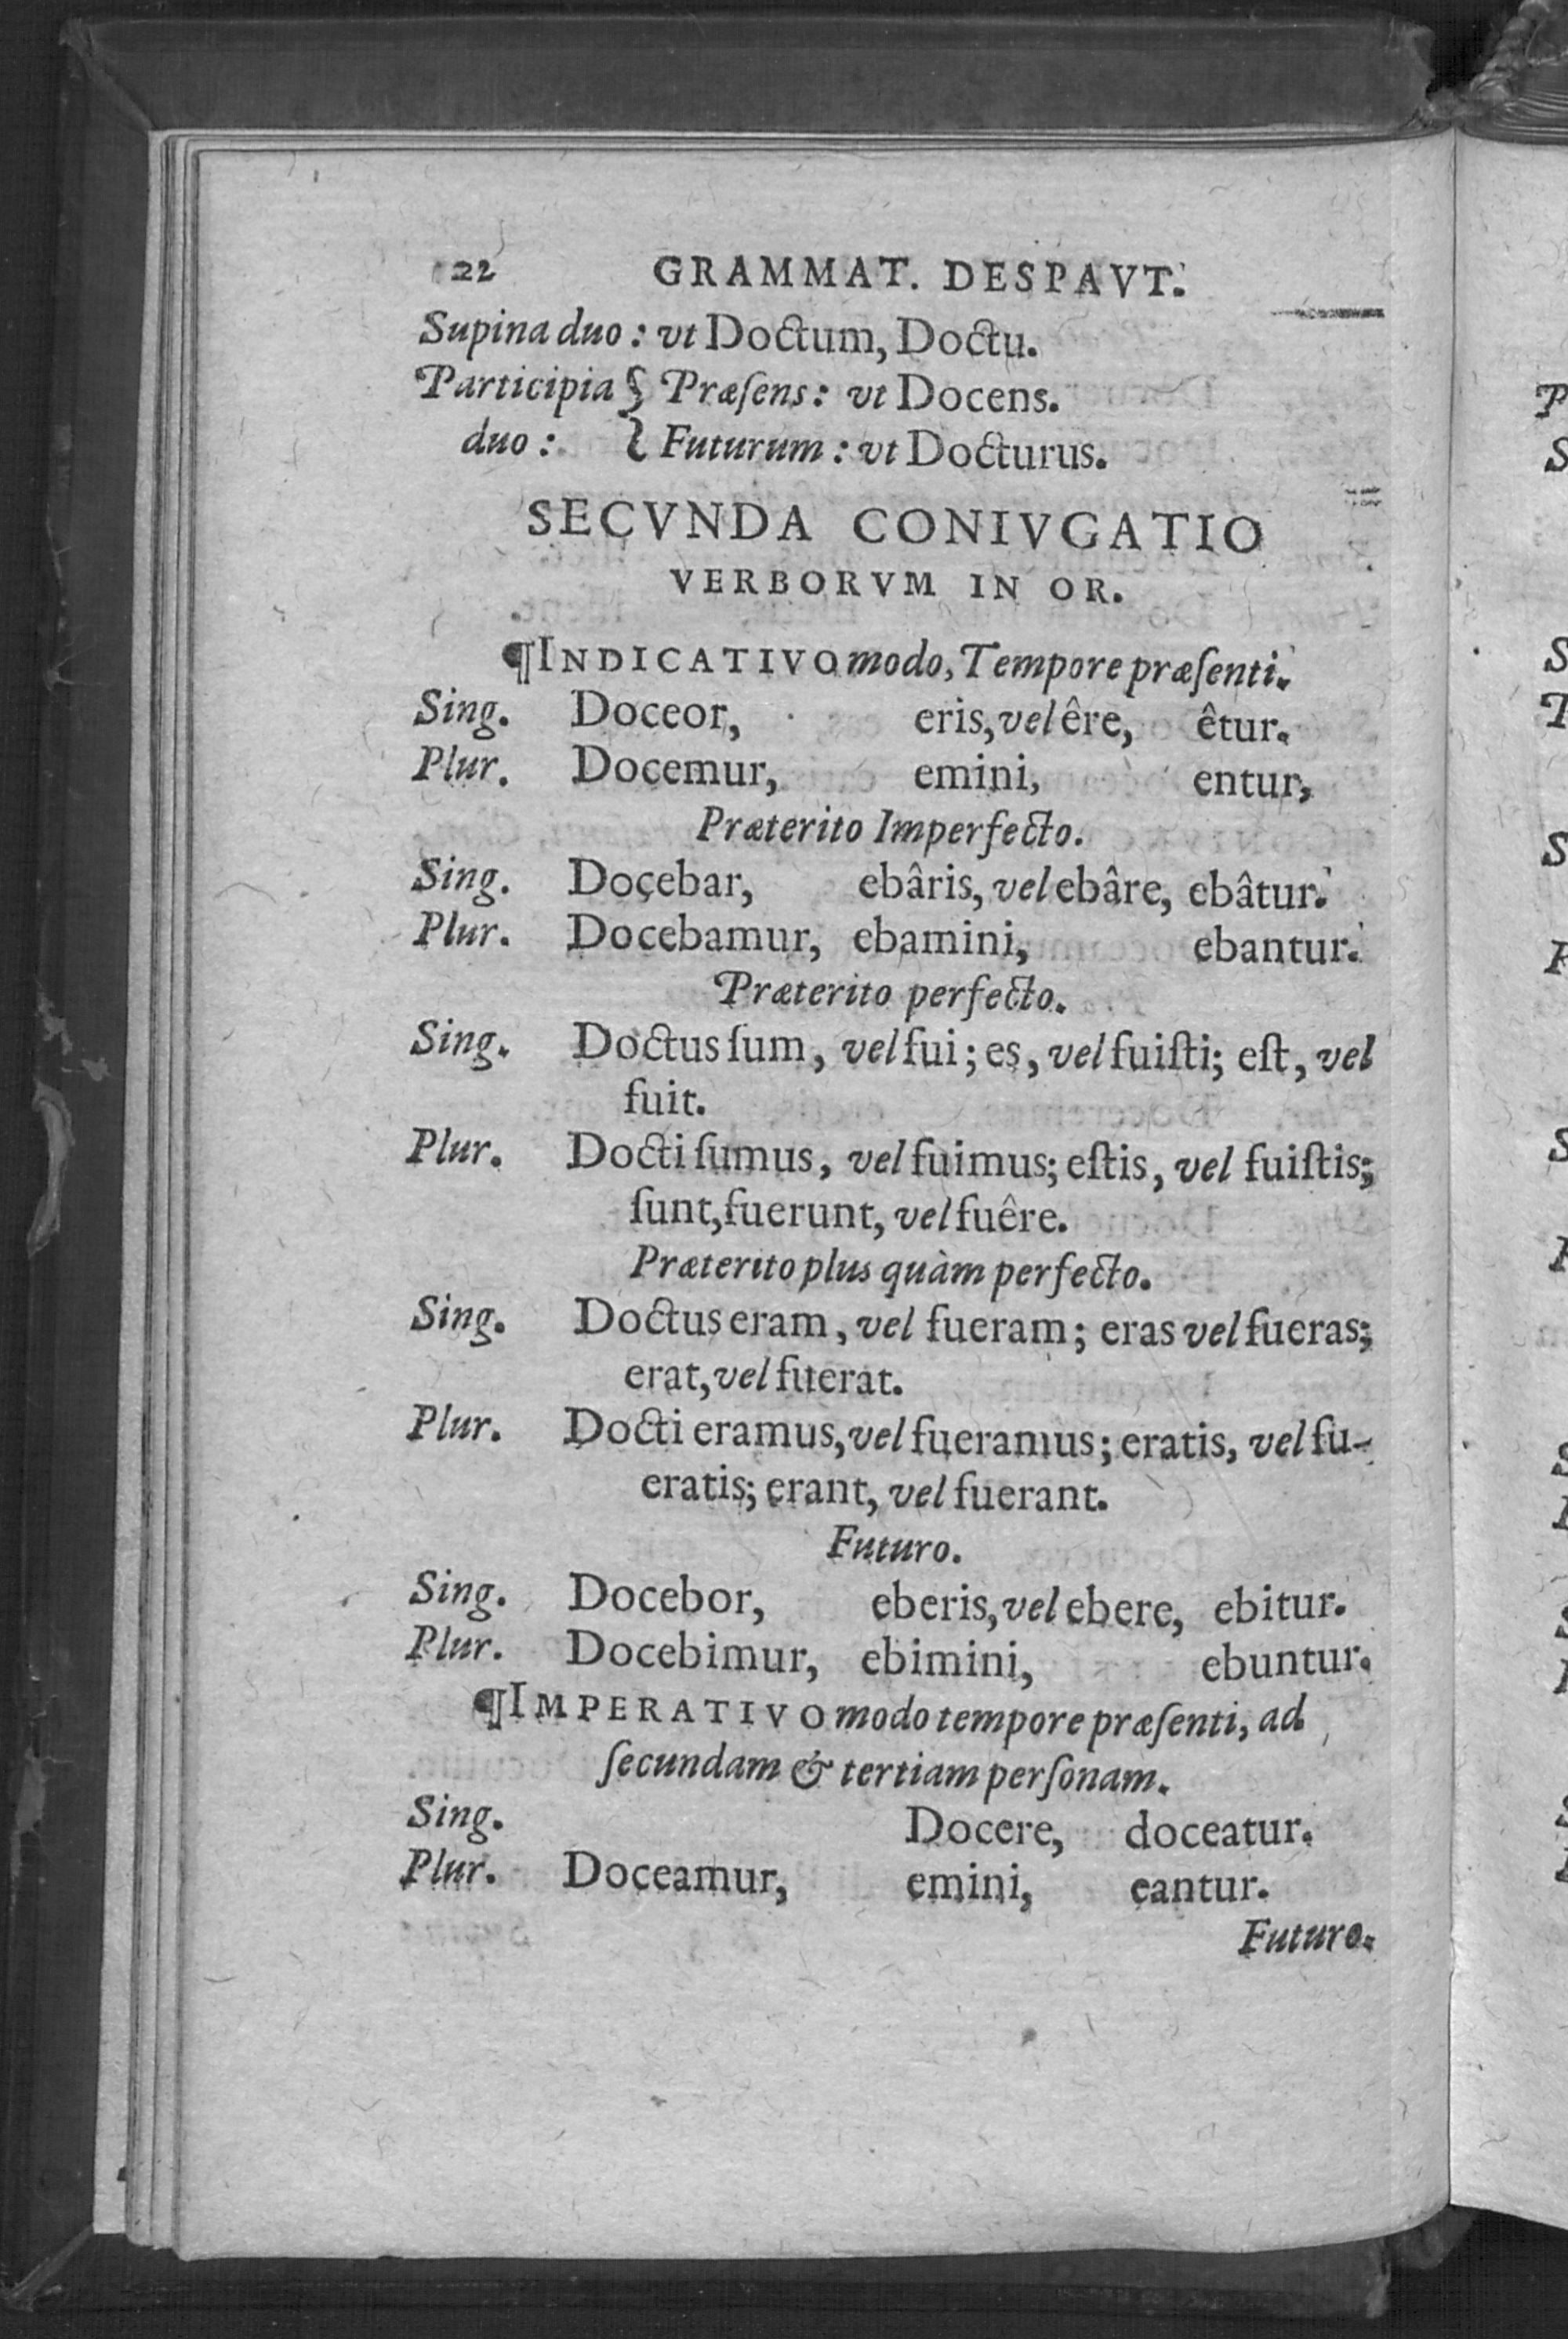 22 GRAMMAT. DESPAVT.
Supina duo : vt Doctum, Doctu.
Participia { Præſens : vt Docens.
duo : { Futurum : vt Docturus.
SECVNDA CONIVGATIO
VERBORVM IN OR.
¶INDICATIVO modo, Tempore præſenti.
Sing. Doceor, eris, vel êre, êtur.
Plur. Docemur, emini, entur,
Præterito Imperfecto.
Sing. Docebar, ebâris, vel ebâre, ebâtur.
Plur. Docebamur, ebamini, ebantur.
Præterito perfecto.
Sing. Doctus ſum, vel fui ; es, vel fuiſti; eſt, vel
fuit.
Plur. Docti ſumus, vel fuimus; eſtis, vel fuiſtis;
ſunt, fuerunt, vel fuêre.
Præterito plus quàm perfecto.
Sing. Doctus eram, vel fueram ; eras vel fueras;
erat, vel fuerat.
Plur. Docti eramus, vel fueramus ; eratis, vel fu-
eratis; erant, vel fuerant.
Futuro.
Sing. Docebor, eberis, vel ebere, ebitur.
Plur. Docebimur, ebimini, ebuntur.
¶IMPERATIVO modo tempore præſenti, ad
ſecundam & tertiam perſonam.
Sing. Docere, doceatur.
Plur. Doceamur, emini, eantur.
Futuro.